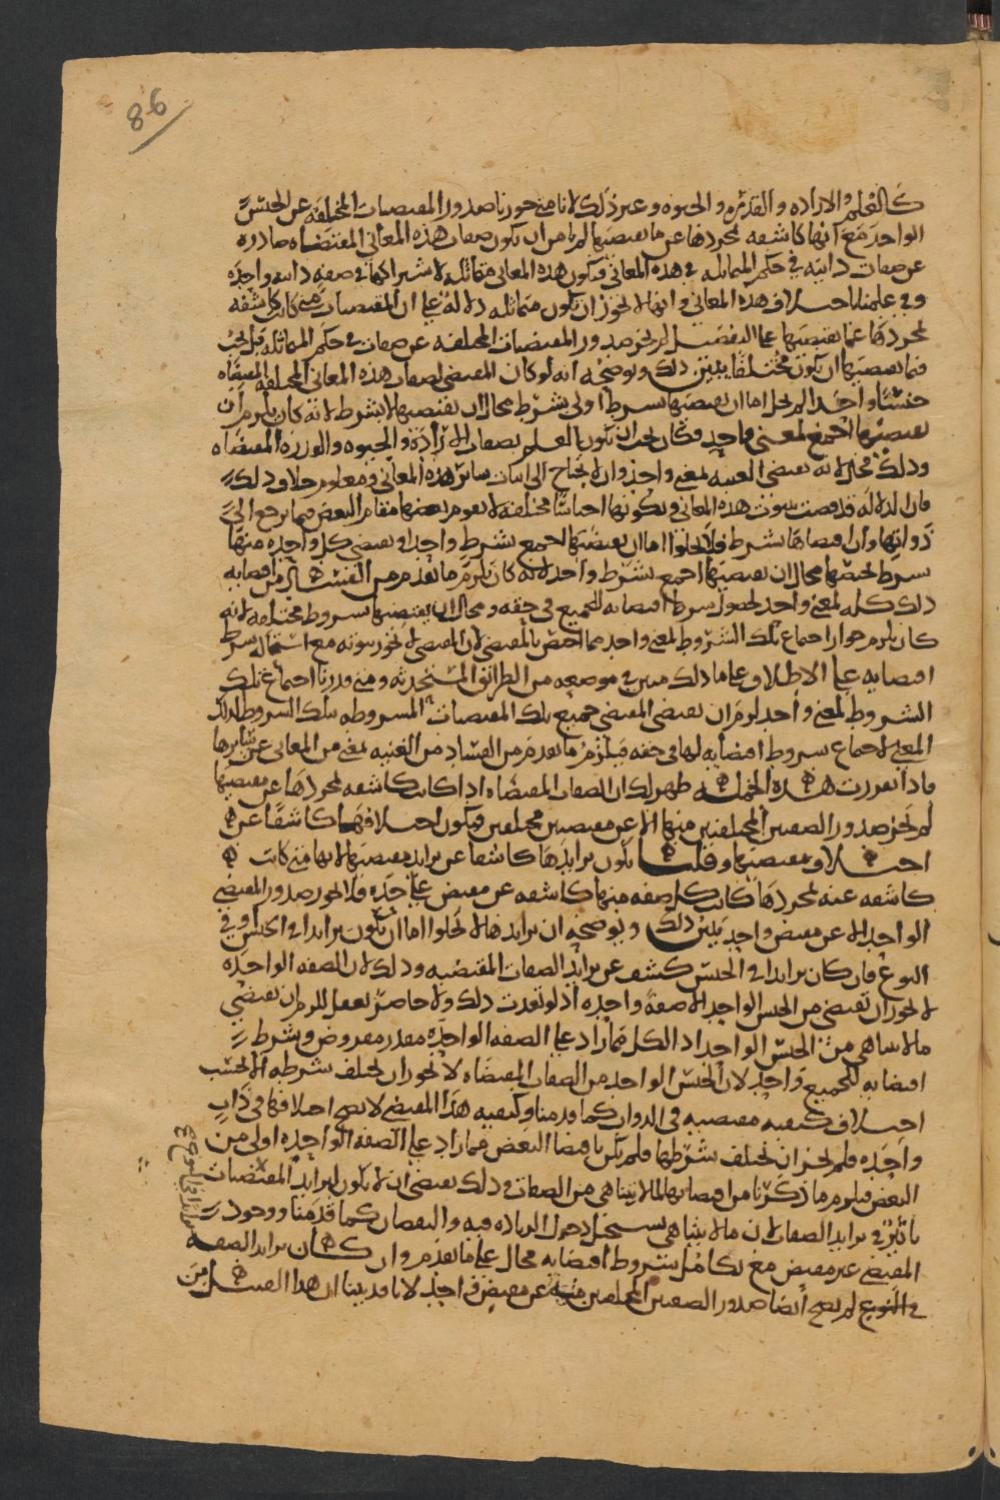 86
كالعلم والاراده والقدره والحيوه وغير ذلك لانا متى جوزنا صدور المقتضيات المختلفه عن الجنس
الواحد مع انها كاشفه بمجردها عن ما يقتضيها لم نامن ان يكون صفات هذه المعاني المقتضاه صادره
عن صفات ذاتيه في حكم المتماثله في هذه المعاني فيكون هذه المعاني متماثله لاشتراكها في صفه ذاتيه واحده
وفي علمنا باختلاف هذه المعاني وانها لا يجوز ان يكون متماثله دلاله على ان المقتضيات متى كانت كاشفه
بمجردها عما يقتضيها على التفصيل لم يجز صدور المقتضيات المختلفه عن صفات في حكم المتماثله بل يجب
فيما يقتضيها ان يكون مختلفا يبين ذلك ويوضحه انه لو كان المقتضي لصفات هذه المعاني المختلفه المقتضاه
جنسا واحدا لم يخل اما ان يقتضيها بشرط اولى بشرط محال ان يقتضيها لا بشرط لانه كان يلزم ان
يقتضيها اجمع لمعنى واحد فكان يجب ان يكون العلم بصفات الاراده والحيوه والقدره المقتضاه
وذلك محال لانه يقتضي الغنيه بمعنى واحد وان لا يحتاج الى اثبات سائر هذه المعاني ومعلوم خلاف ذلك
فان الدلاله قد قضت بثبوت هذه المعاني وبكونها اجناسا مختلفه لا يقوم بعضها مقام البعض فيما يرجع الى
ذواتها وان اقتضاها بشرط فلا يخلوا اما ان يقتضيها اجمع بشرط واحد او يقتضي كل واحده منها
بشرط يخصها محال ان يقتضيها اجمع بشرط واحد لانه كان يلزم ما تقدم من الفساد من اقتضايه
ذلك كله لمعنى واحد لحصول شرط اقتضايه للجميع في حقه ومحال ان يقتضيها بشروط مختلفه لانه
كان يلزم جواز اجتماع تلك الشروط لمعنى واحد مما اختص بالمقتضي لان المقتضي لا يجوز ثبوته مع استحاله شرط
اقتضايه على الاطلاق على ما ذلك مبين في موضعه من الطرائق المستحدثه ومتى قدرنا اجتماع تلك
الشروط لمعنى واحد لزم ان يقتضي المقتضي جميع تلك المقتضيات المشروطه بتلك الشروط لذلك
المعنى لاجتماع شروط اقتضايه لها في حقه فيلزم ما تقدم من الفساد من الغنيه بمعنى من المعاني عن سايرها
فاذا تقررت هذه الجمله ظهر لك ان الصفات المقتضاه اذا كانت كاشفه بمجردها عن مقتضيها
لم يجز صدور الصفتين المختلفتين منها الا عن مقتضيين مختلفين فيكون اختلافهما كاشفا عن
اختلاف مقتضيها وقلنا يكون تزايدها كاشفا عن تزايد مقتضيها لانها متى كانت
كاشفه عنه بمجردها كانت كل صفه منها كاشفه عن مقتض على حده فلا يجوز صدور المقتضي
الواحد الا عن مقتض واحد يبين ذلك ويوضحه ان تزايدها لا يخلوا اما ان يكون تزايدا في الجنس او في
النوع فان كان تزايدا في الجنس كشف عن تزايد الصفات المقتضيه وذلك لان الصفه الواحده
لا يجوز ان تقتضي من الجنس الواحد الا صفة واحده اذ لو تعدت ذلك ولا حاصر يعقل للزم ان يقتضي
ما لا يتناهى من الجنس الواحد اذ الكل فما زاد على الصفه الواحده مقدر مفروض وشرط
اقتضايه للجميع واحد لان الجنس الواحد من الصفات المقتضاه لا يجوز ان يختلف شرطه الا بحسب
اختلاف كيفيه مقتضيه في الذوات كما قدمنا وكيفيه هذا المقتضي لا يصح اختلافها في ذات
واحده فلم يجز ان يختلف شرطها فلم يكن باقتضا البعض فما زاد على الصفه الواحده اولى من
البعض فيلزم ما ذكرنا من اقتضايها لما لا يتناهى من الصفات وذلك يقتضي ان لا يكون لتزايد المقتضيات
تاثير في تزايد الصفات لان ما لا يتناهى يستحيل دخول الزياده فيه والنقصان كما قدمنا ووجود
المقتضي غير مقتض مع تكامل شروط اقتضايه محال على ما تقدم وان كان تزايد الصفه
في النوع لم يصح ايضا صدور الصفتين المختلفتين منه عن مقتض واحد لانا قد بينا ان هذا القبيل من